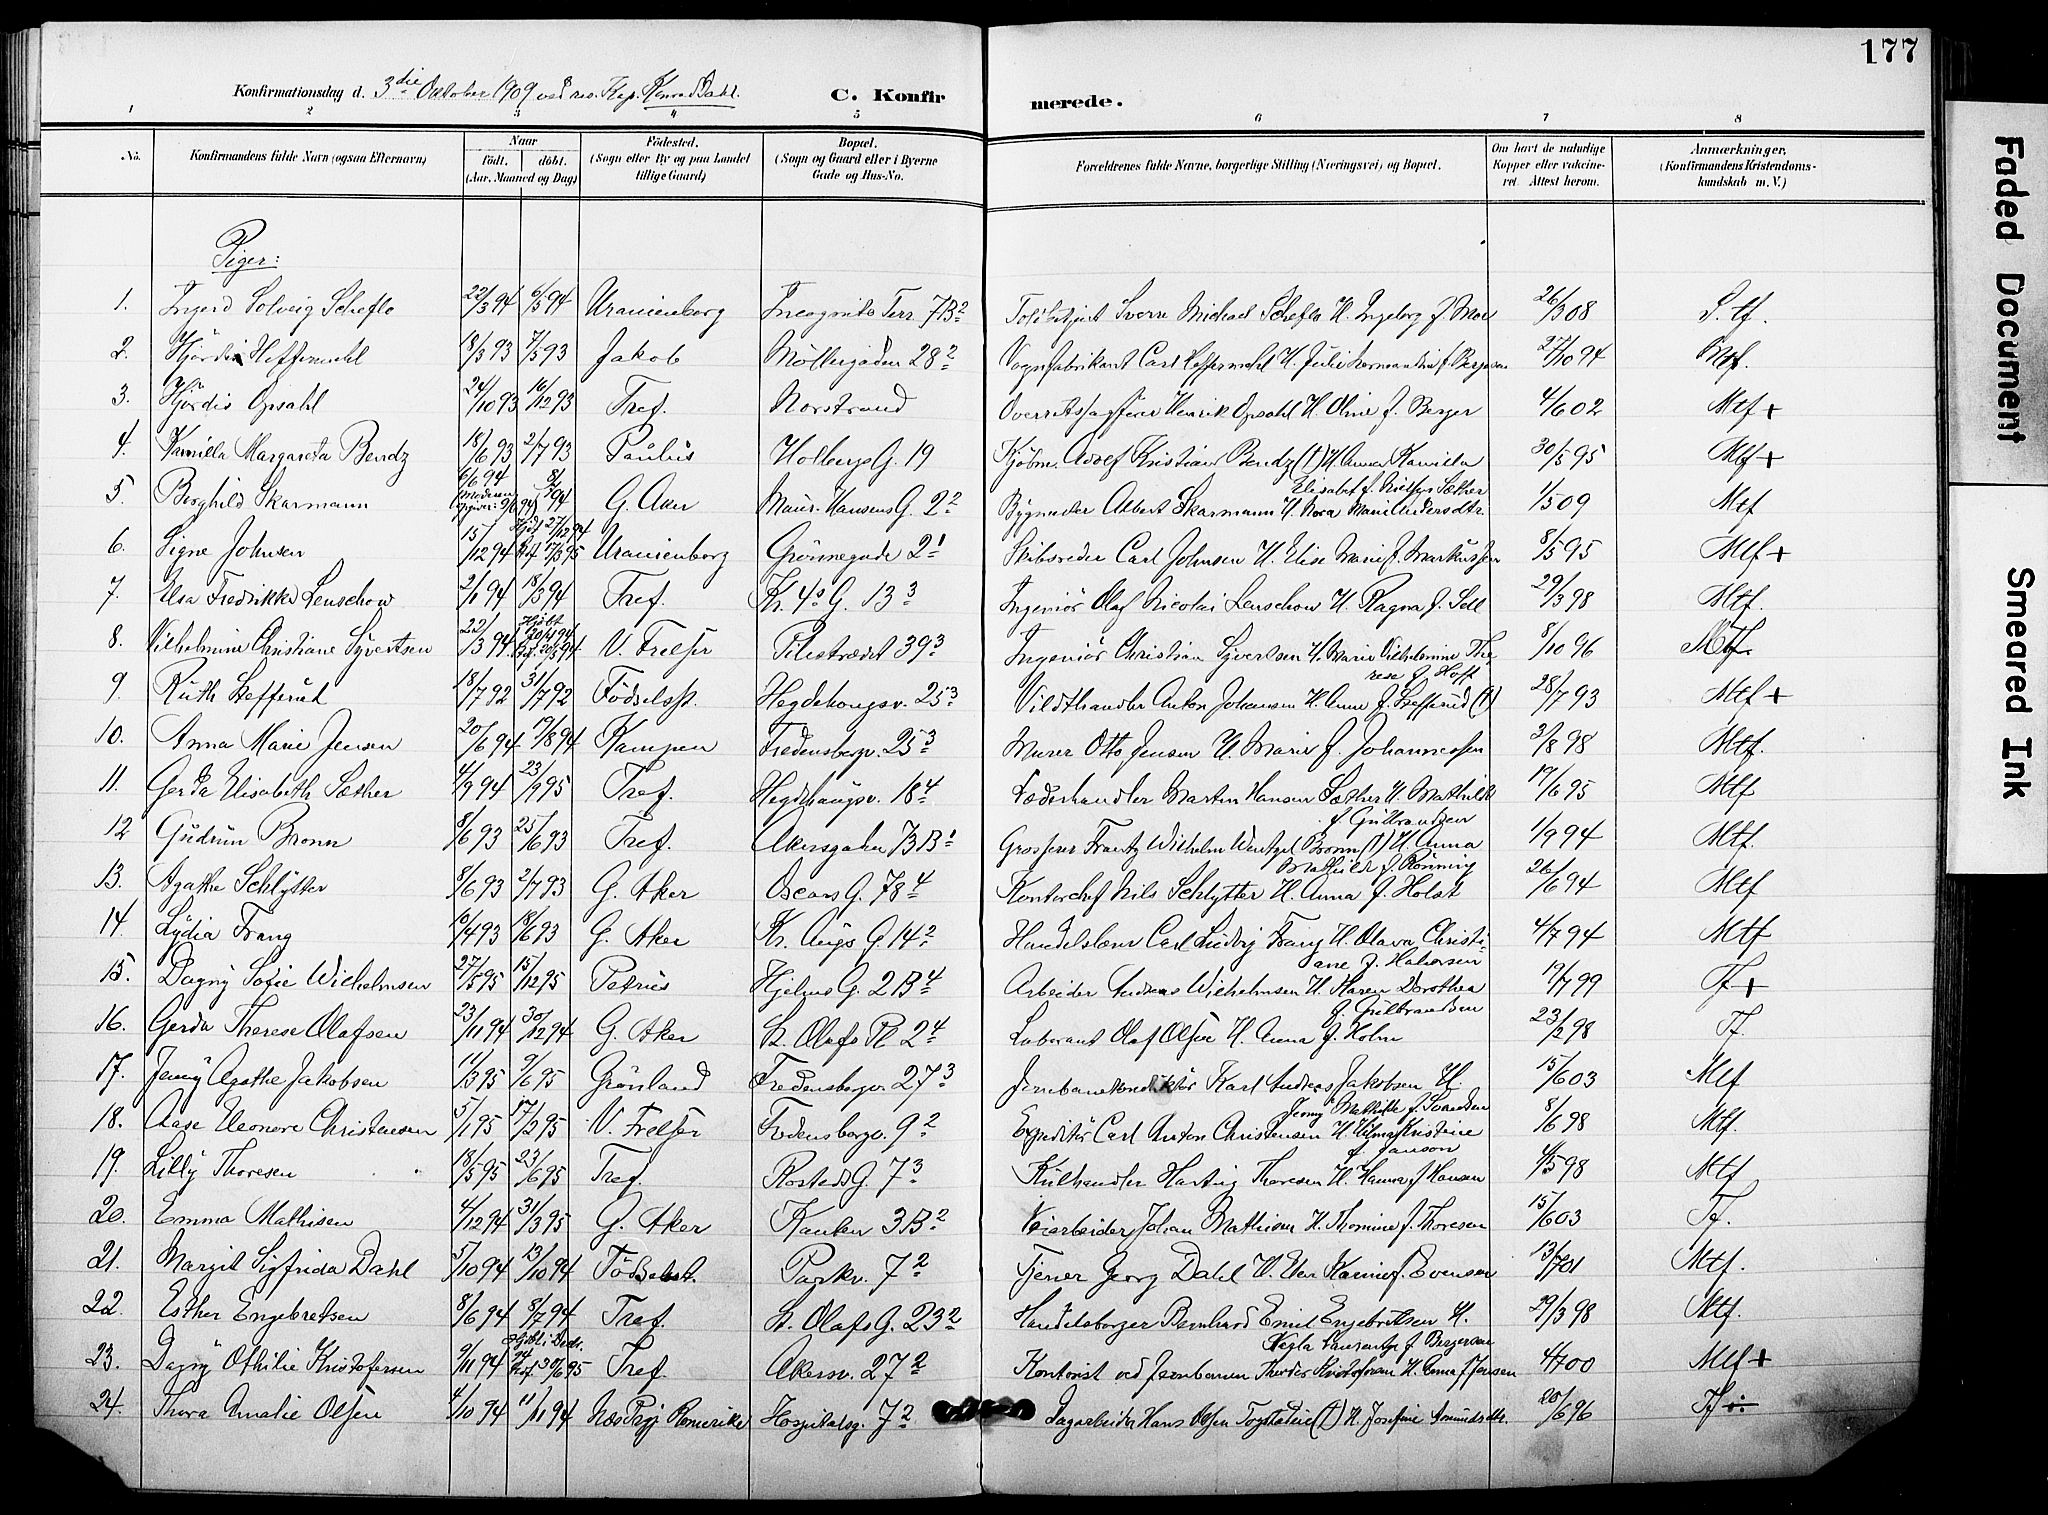 177
Konfirmationsdag d. 3die Oktober 1909 ved res. Kap. Konrad Dahl.
C. Konfirmerede.
1 2 3 4 5 6 7 8
No. Konfirmandens fulde Navn (ogsaa Efternavn) Naar født. døbt. (Aar, Maaned og Dag) Fødested. (Sogn eller By og paa Landet tillige Gaard) Bopæl. (Sogn og Gaard eller i Byerne Gade og Hus-No. Forældrenes fulde Navne, borgerlige Stilling (Næringsvei) og Bopæl. Om havt de naturlige Kopper eller vaccineret. Attest herom. Anmærkninger, (Konfirmandens Kristendomskundskab m. V.)
Piger:
1. Ingerd Solveig Scheflo 22/3 94 6/5 94 Uranienborg Incognito Terr. 7B² Toldbetjent Sverre Michael Scheflo H. Ingeborg f. Moe 26/3 08 S. tf.
2. Hjørdis Heffermehl 18/3 93 7/5 93 Jakob Møllergaden 28² Vognfabrikant Carl Heffermehl H. Julie f. 27/10 94 Mtf.
3. Hjørdis Opsahl 24/10 93 16/12 93 Tref. Norstrand Overretssagfører Henrik Opsahl H. Oline f. Berger 4/6 02 Mtf +
4. Kamilla Margareta Bendz 18/6 93 2/7 93 Paulus Holbergs G. 19 Kjøbm. Adolf Kristian Bendz (†) H. Anna Kamilla 30/5 95 Mtf +
Elisabet f. Sæther
5. Borghild Skarmann 6/6 94 8/7 94 G. Aker Maur. Hansens G. 2² Bygmester Albert Skarmann H. Nora Marie Andersdtr. 1/5 09 Mtf
6. Signe Johnsen 15/12 94 Hjdt 27/12 94 Uranienborg Grønnegade 2¹ Skibsreder Carl Johnsen H. Elise Marie f. Markussen 8/5 95 Mtf +
7. Elsa Fredrikke Lenschow 2/1 94 18/3 94 Tref. Kr. 4s G. 13³ Ingeniør Olaf Nicolai Lenschow H. Ragna f. Sell 29/3 98 Mtf.
8. Vilhelmine Christiane Syvertsen 22/3 94 V. Frelser Pilestrædet 39³ Ingeniør Christian Syvertsen H. Marie Vilhelmine The 8/10 96 Mtf.
rese f. Hoff
9. Ruth Lefferud 18/7 92 31/7 92 Fødselsst. Hegdehaugsv. 25³ Vildthandler Anton Johansen H. Anna f. Lefferud (†) 28/7 93 Mtf +
10. Anna Marie Jensen 20/6 94 19/8 94 Kampen Fredensborgv. 25³ Murer Otto Jensen H. Marie f. Johannessen 3/8 98 Mtf.
11. Gerda Elisabeth Sæther 4/9 94 23/9 95 Tref. Hegdehaugsv. 18⁴ Læderhandler Martin Hansen Sæther H. Mathilde 19/6 95 Mtf
f. Gulbrandsen
12 Gudrun Bronn 8/6 93 25/6 93 Tref. Akersgaden 73B¹ Grosserer Frantz Wilhelm Wentzel Bronn (†) H. Anna 1/9 94 Mtf.
Mathilde f. Rønning
13. Agathe Schlytter 8/6 93 2/7 93 G. Aker Oscars G. 78⁴ Kontorchef Nils Schlytter H. Anna f. Holst 26/6 94 Mtf
14. Lydia Frang 10/4 93 18/6 93 G. Aker Kr. Augs G. 14² Handelsmand Carl Ludvig Frang H. Olava Christi- 4/7 94 Mtf
ane f. Halvorsen
15. Dagny Sofie Wilhelmsen 27/5 95 15/12 95 Petrus Hjelms G. 2B⁴ Arbeider Andreas Wilhelmsen H. Maren Dorothea 19/7 99 Tf +
f. Gulbrandsen
16. Gerda Therese Olafsen 23/11 94 30/12 94 G. Aker St. Olafs Pl. 2⁴ Laborant Olaf Olsen H. Anna f. Holm 23/2 98 Tf.
17. Jenny Agathe Jakobsen 11/3 95 9/6 95 Grønland Fredensborgv. 27³ Jernbanekonduktør Karl Andreas Jakobsen H. 15/6 03 Mtf
Jenny Mathilde f. Svendsen
18. Aase Eleonore Christensen 5/1 95 17/2 95 V. Frelser Fredensborgv. 9² Expeditør Carl Anton Christensen H. Hilma Kristine 8/6 98 Mtf.
f. Janson
19. Lilly Thoresen 18/5 95 23/6 95 Tref. Rosteds G. 7³ Kulhandler Hartvig Thoresen H. Hanna f. Hansen 4/5 98 Mtf
20. Emma Mathisen 4/12 94 31/3 95 G. Aker Kanten 3B² Veiarbeider Johan Mathisen H. Thomine f. Thoresen 15/6 03 Tf.
21. Margit Sigfrida Dahl 5/10 94 13/10 94 Fødselsst. Parkv. 7² Tjener Georg Dahl H. Elen Karine f. Evensen 13/7 01 Mtf.
22. Esther Engebretsen 8/6 94 8/7 94 Tref. St. Olafs G. 23² Handelsborger Bernhard Emil Engebretsen H. 29/3 98 Mtf.
f. Bergersen
23. Dagny Othilie Kristofersen 9/11 94 30/6 95 Tref. Akersv. 27² Kontorist ved Jernbanen Theodor Kristofersen H. Anna f. Jensen 4/7 00 Mtf +
24. Thora Amalie Olsen 4/10 94 11/11 94 Næs Prgj Romerike Hospitalsg. 7² Dagarbeider Hans Olsen (†) H. Josefine Amundsdtr. 20/6 96 Tf
Faded Document
Smeared Ink